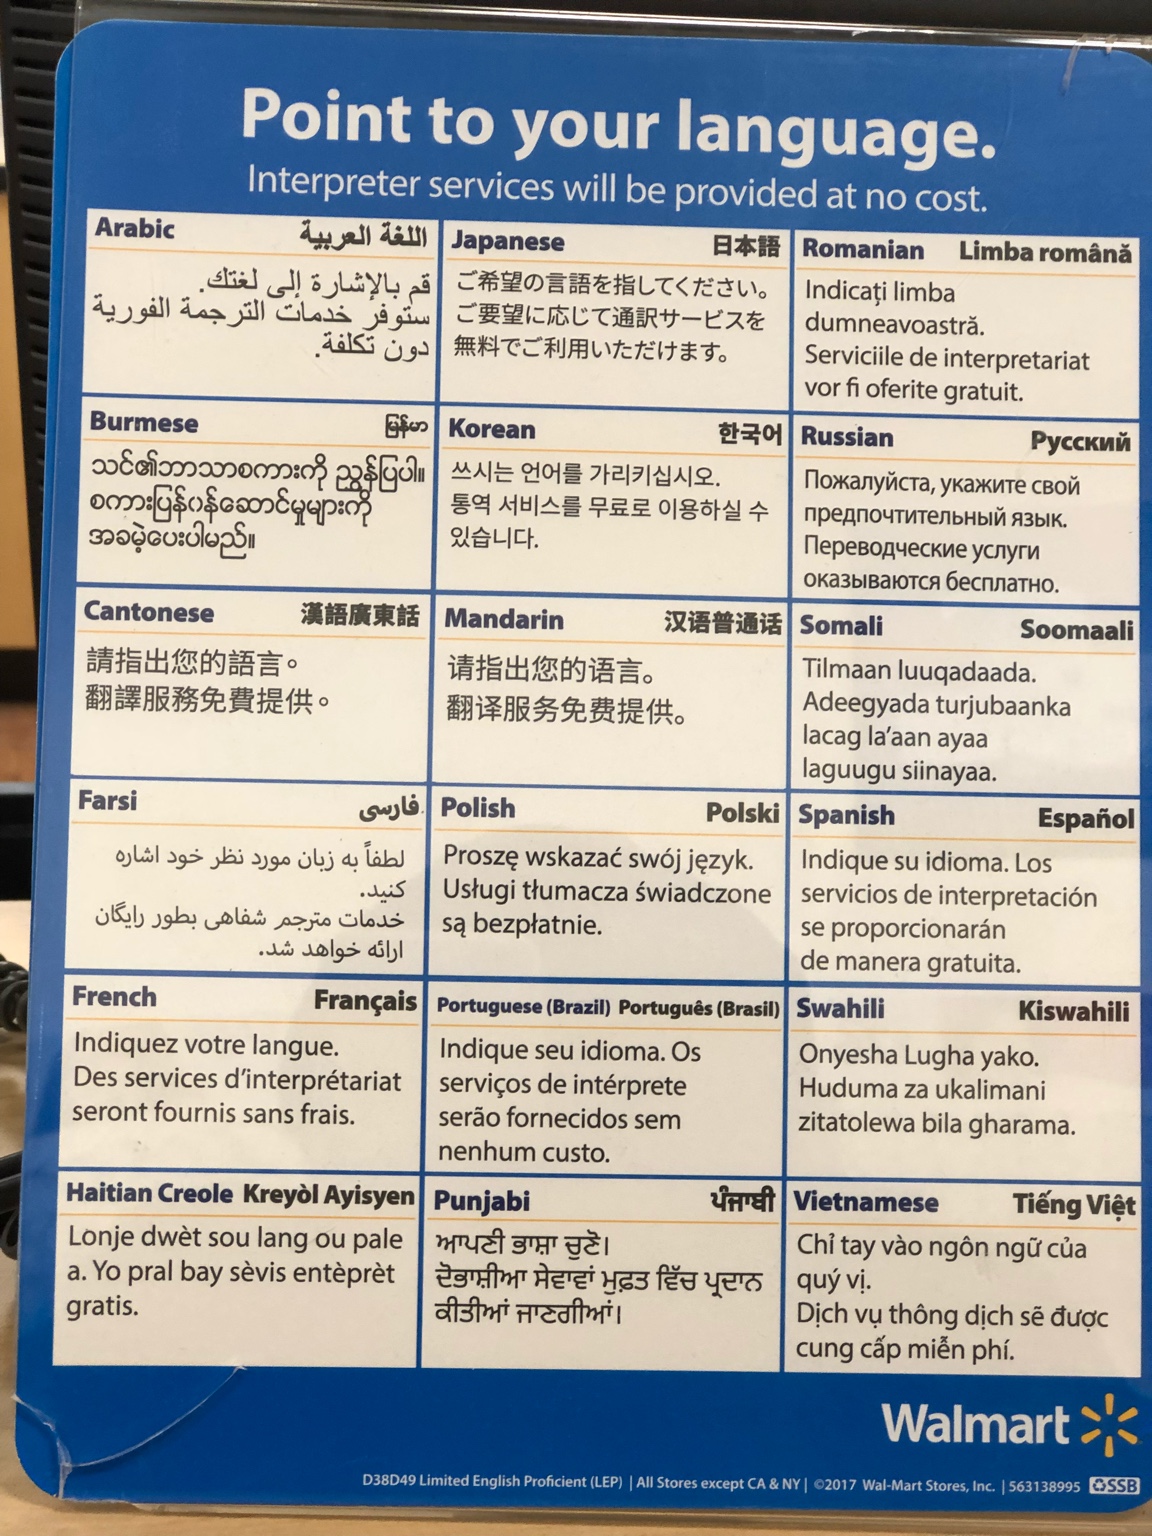 Point to your language.
Interpreter services will be provided at no cost.
Arabic اللغة العربية
قم بالإشارة إلى لغتك.
ستوفر خدمات الترجمة الفورية
دون تكلفة.
Burmese မြန်မာ
သင်၏ဘာသာစကားကို ညွှန်ပြပါ။
စကားပြန်ဝန်ဆောင်မှုများကို
အခမဲ့ပေးပါမည်။
Cantonese 漢語廣東話
請指出您的語言。
翻譯服務免費提供。
Farsi فارسی
لطفاً به زبان مورد نظر خود اشاره
کنید.
خدمات مترجم شفاهی بطور رایگان
ارائه خواهد شد.
French Français
Indiquez votre langue.
Des services d’interprétariat
seront fournis sans frais.
Haitian Creole Kreyòl Ayisyen
Lonje dwèt sou lang ou pale
a. Yo pral bay sèvis entèprèt
gratis.
Japanese 日本語
ご希望の言語を指してください。
ご要望に応じて通訳サービスを
無料でご利用いただけます。
Korean 한국어
쓰시는 언어를 가리키십시오.
통역 서비스를 무료로 이용하실 수
있습니다.
Mandarin 汉语普通话
请指出您的语言。
翻译服务免费提供。
Polish Polski
Proszę wskazać swój język.
Usługi tłumacza świadczone
są bezpłatnie.
Portuguese (Brazil) Português (Brasil)
Indique seu idioma. Os
serviços de intérprete
serão fornecidos sem
nenhum custo.
Punjabi ਪੰਜਾਬੀ
ਆਪਣੀ ਭਾਸ਼ਾ ਚੁਣੋ।
ਦੋਭਾਸ਼ੀਆ ਸੇਵਾਵਾਂ ਮੁਫ਼ਤ ਵਿੱਚ ਪ੍ਰਦਾਨ
ਕੀਤੀਆਂ ਜਾਣਗੀਆਂ।
Romanian Limba română
Indicați limba
dumneavoastră.
Serviciile de interpretariat
vor fi oferite gratuit.
Russian Русский
Пожалуйста, укажите свой
предпочтительный язык.
Переводческие услуги
оказываются бесплатно.
Somali Soomaali
Tilmaan luuqadaada.
Adeegyada turjubaanka
lacag la’aan ayaa
laguugu siinayaa.
Spanish Español
Indique su idioma. Los
servicios de interpretación
se proporcionarán
de manera gratuita.
Swahili Kiswahili
Onyesha Lugha yako.
Huduma za ukalimani
zitatolewa bila gharama.
Vietnamese Tiếng Việt
Chỉ tay vào ngôn ngữ của
quý vị.
Dịch vụ thông dịch sẽ được
cung cấp miễn phí.
Walmart
D38D49 Limited English Proficient (LEP) | All Stores except CA & NY | ©2017 Wal-Mart Stores, Inc. | 563138995 SSB